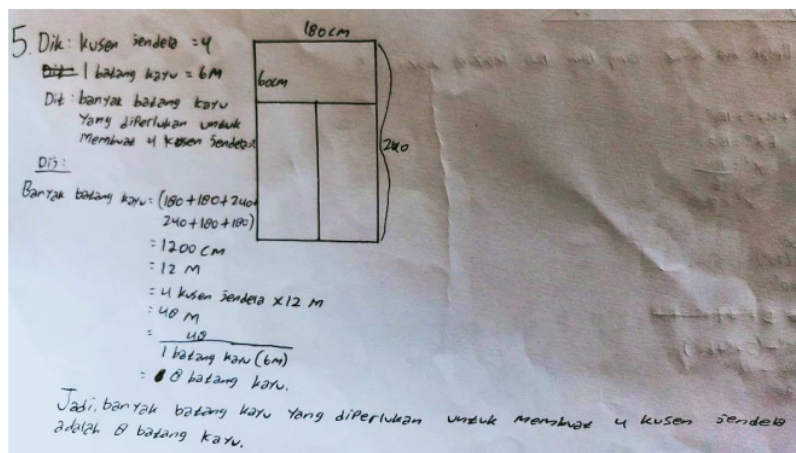 5. Dik: kusen jendela = 4
1 batang kayu = 6M
Dit: banyak batang kayu
Yang diperlukan untuk
Membuat 4 kusen jendela:
180cm
60cm
240
Dij:
Banyak batang kayu = (180 + 180 + 240 +
240 + 180 + 180)
= 1200 CM
= 12 M
= 4 kusen jendela x 12 M
= 48 M
= 48
1 batang kayu (6m)
= 8 batang kayu.
Jadi, banyak batang kayu yang diperlukan untuk membuat 4 kusen jendela
adalah 8 batang kayu.